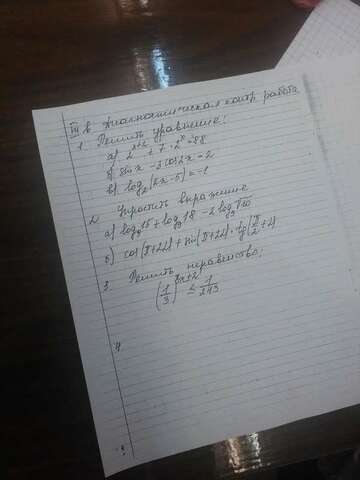 III в. Диагностическая контр. работа
1. Решить уравнение:
а) 2^(x+2) + 7 · 2^x = 88
б) sin x - 3 cos 2x = 2
в) log₂(2x - 5) = -1
2. Упростить выражение
а) log₉ 15 + log₉ 18 - 2 log₉ √10
б) cos(π+2α) + sin(π+2α) · tg(π/2 + α)
3. Решить неравенство:
(1/3)^(3x+2) ≤ 1/243
4.